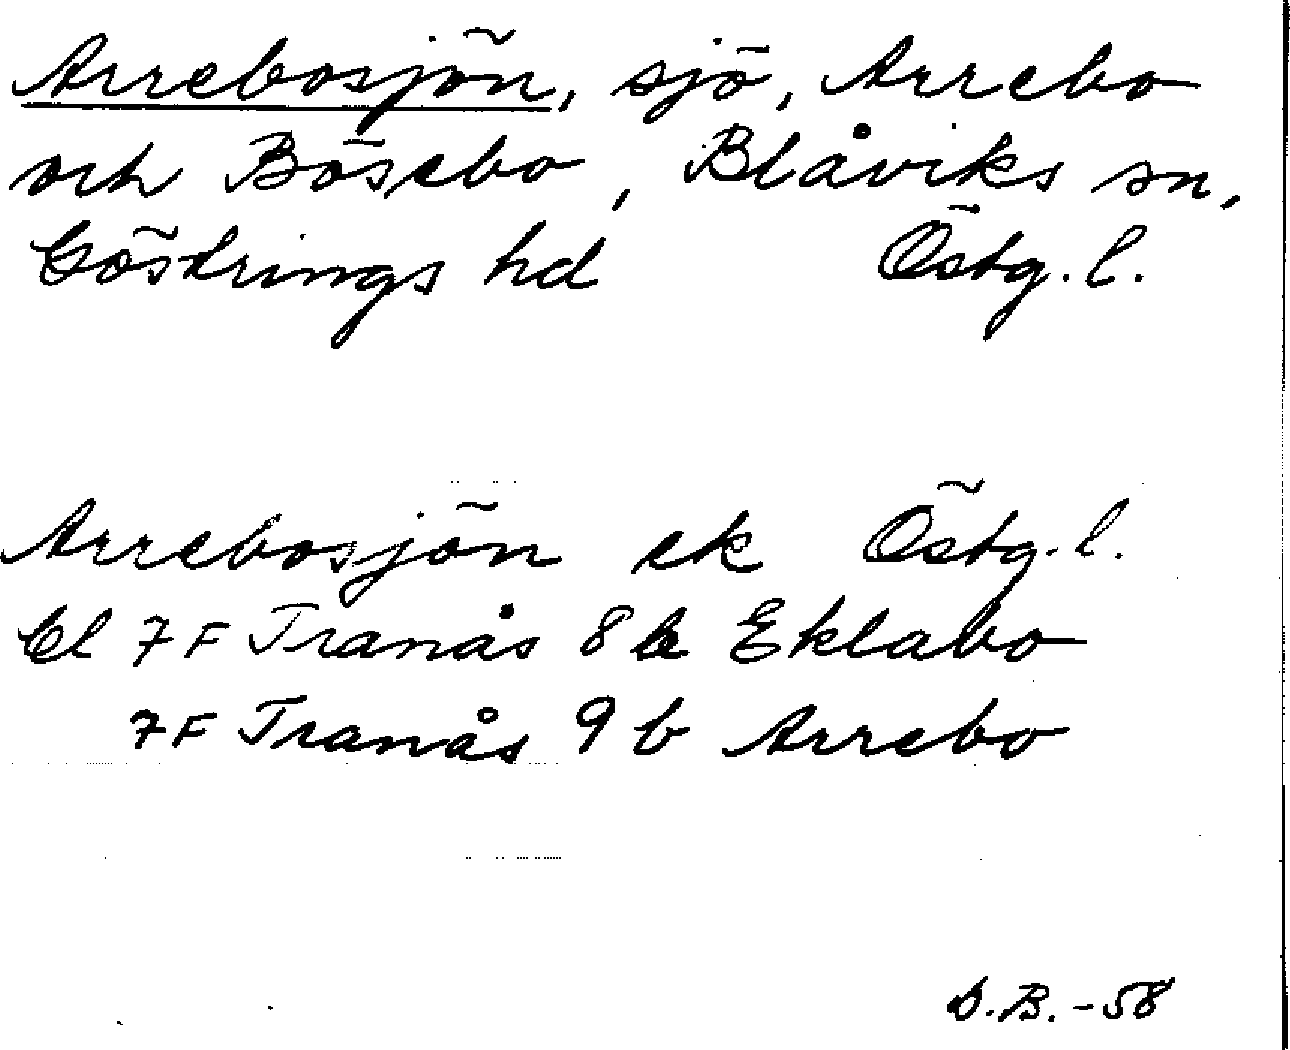 Arrebosjön, sjö, Arrebo
och Bösebo, Blåviks sn,
Göstrings hd Östg. l.
Arrebosjön ek Östg. l.
El 7F Tranås 8b Eklabo
7F Tranås 9b Arrebo
D.B. -58